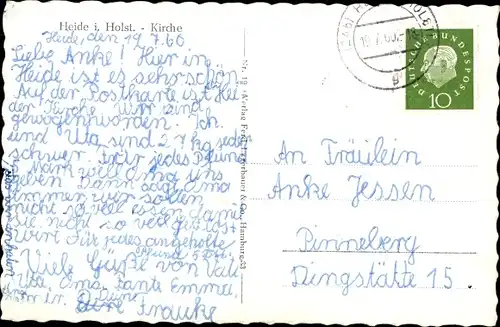 Heide i. Holst. - Kirche
Heide, den 19.7.60
Liebe Anke! Hier in
Heide ist es sehr schön.
Auf der Postkarte ist Hei
der Kirche. Wir sind
gewogen worden. Ich
und Uta sind 27 kg jeder
schwer. Für jedes Pfund
Mark will Oma uns
geben. Dann sagt Oma
immer wir sollen
nicht so viel essen damit
sie nicht so viel
wird Für jedes angeholte
Pfund
Viele Grüße von
Uta, Oma, Tante Emma,
Deine Frauke
Nr. 19 Verlag Ferd. Lagerbauer & Co., Hamburg
19.7.60.
DEUTSCHE BUNDESPOST
10
An Fräulein
Anke Jessen
Pinneberg
Dingstätte 15